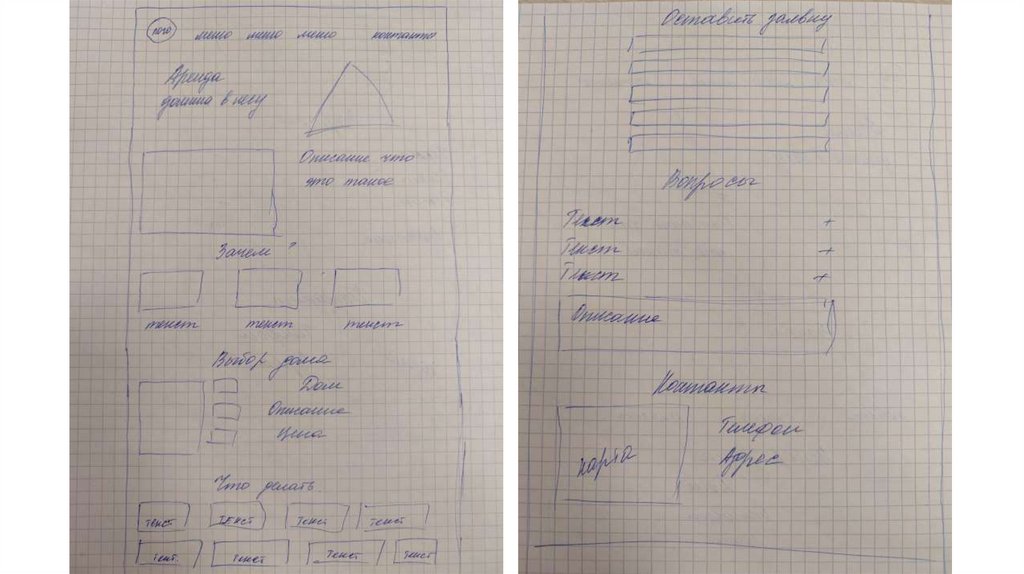 лого меню меню меню контакты
Аренда
домика в лесу
Описание что
это такое
Зачем ?
текст текст текст
Выбор дома
Дом
Описание
Цена
Что делать
Текст Текст Текст Текст
Текст Текст Текст Текст
Оставить заявку
Вопросы
Текст +
Текст +
Текст +
Описание
Контакты
карта
Телефон
Адрес